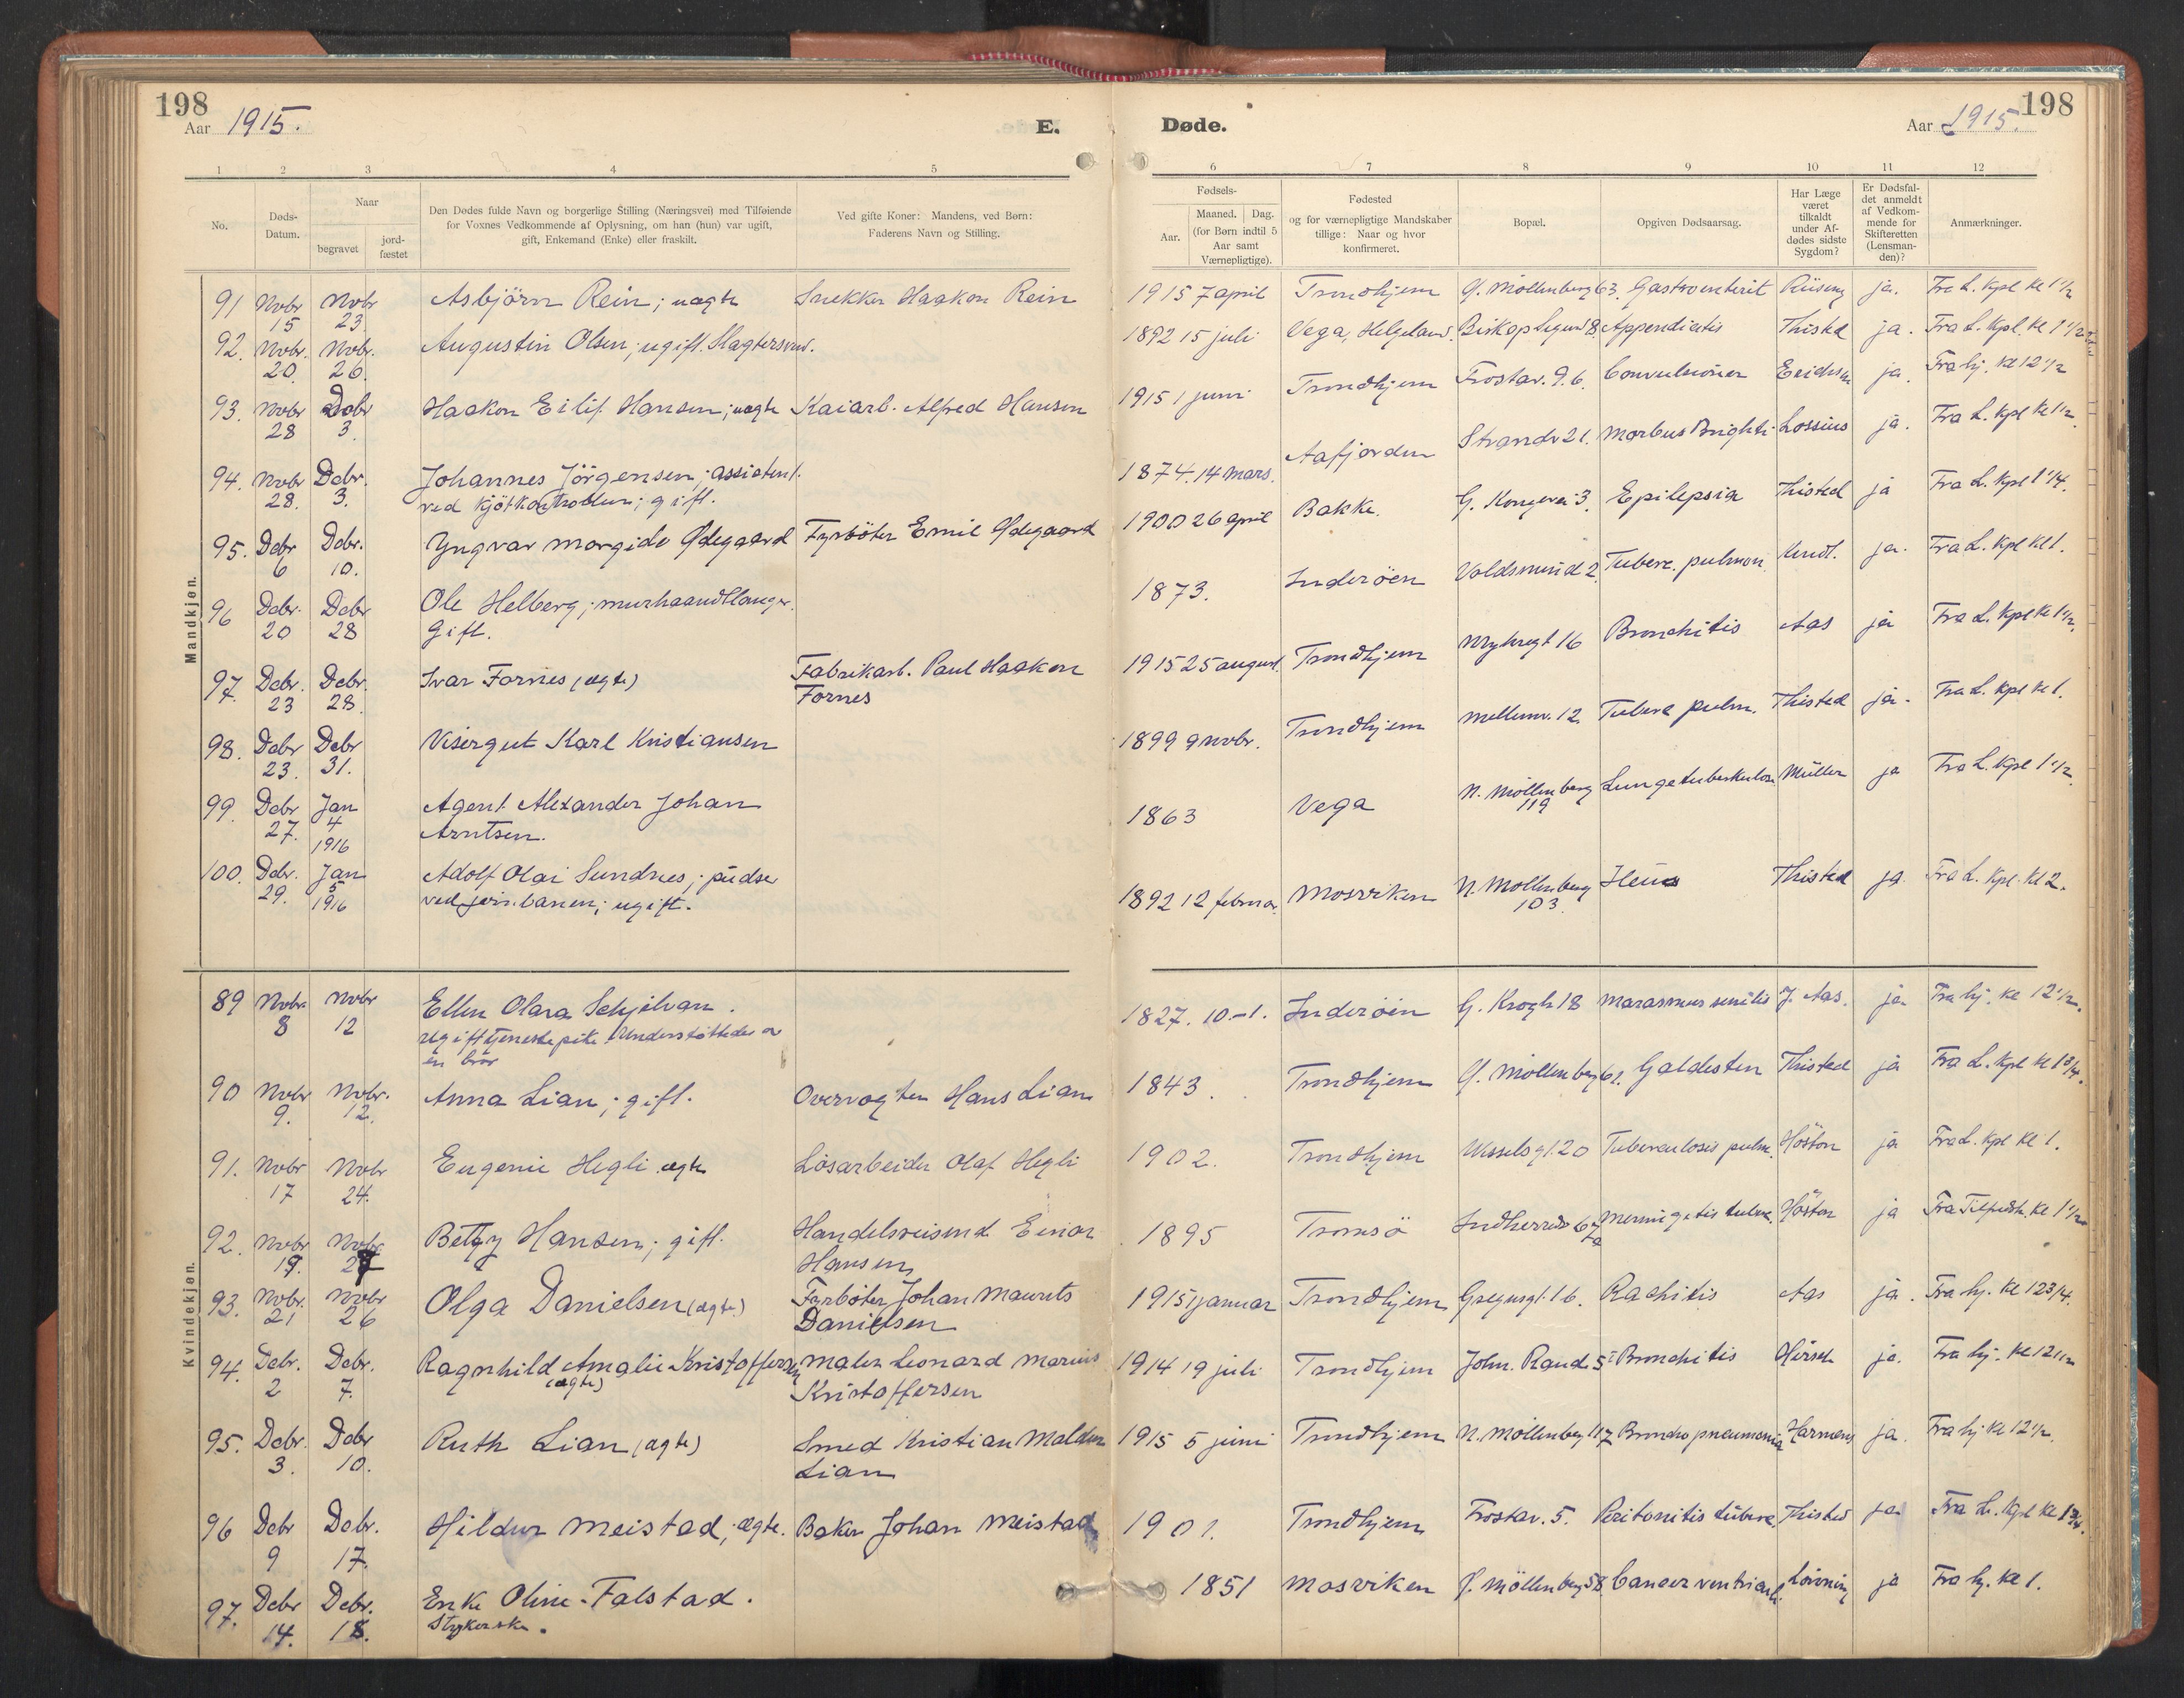 198
Aar 1915.
E.
1 2 3 4 5
No.
Døds-
Datum.
Naar
begravet
jord-
fæstet
Den Dødes fulde Navn og borgerlige Stilling (Næringsvei) med Tilføiende
for Voxnes Vedkommende af Oplysning, om han (hun) var ugift,
gift, Enkemand (Enke) eller fraskilt.
Ved gifte Koner: Mandens, ved Børn:
Faderens Navn og Stilling.
Mandkjøn.
91 Novbr Novbr Asbjörn Rein; uægte Snekker Haakon Rein
15 23
92. Novbr. Novbr. Augustin Olsen; ugift.
20. 26.
93. Novbr Debr Haakon Eilif Hansen; uægte Kaiarb. Alfred Hansen
28 3.
94. Novbr Debr. Johannes Jörgensen; assistent
28. 3. ved Kjötkontrollen; gift.
95. Debr Debr. Yngvar Morgido Ødegaard Fyrböter Emil Ødegaard
6 10.
96 Debr. Debr Ole Helberg; murhaandtlanger.
20 28 Gift.
97. Debr. Debr. Ivar Fornes (ægte) Fabrikarb. Paul Haakon
23 28. Fornes
98. Debr Debr Visergut Karl Kristiansen
23. 31.
99. Debr Jan Agent Alexander Johan
27. 4 Arntsen.
1916
100. Debr. Jan Adolf Olai Sundnes; pudser
29. 5 ved jern.banen; ugift.
1916
Kvindekjøn.
89 Novbr Novbr Ellen Olara Schjelvan.
8 12 Ugift tjenestepike. Understöttedes av
en bror
90 Novbr Novbr. Anna Lian; gift. Overvogter Hans Lian
9. 12.
91. Novbr Novbr Eugenie Hegli ægte Lösarbeider Olaf Hegli
17 24.
92. Novbr Novbr Betzy Hansen; gift. Handelsreisend Einar
19. 27 Hansen
93. Novbr. Novbr Olga Danielsen (ægte) Fyrböter Johan Maurits
21 26 Danielsen
94. Debr. Debr. Ragnhild Amalie Kristoffersen Maler Leonard Marius
2 7. (ægte) Kristoffersen
95. Debr. Debr Ruth Lian (ægte) Smed Kristian
3. 10. Lian
96 Debr Debr. Hildur Meistad; ægte. Baker Johan Meistad
9 17.
97. Debr Debr. Enke Oline Falstad.
14. 18. Strykerske.
Døde.
198
Aar 1915.
6 7 8 9 10 11 12
Fødsels-
Aar.
Maaned. Dag.
(for Børn indtil 5
Aar samt
Værnepligtige).
Fødested
og for værnepligtige Mandskaber
tillige: Naar og hvor
konfirmeret.
Bopæl.
Opgiven Dødsaarsag.
Har Læge
været
tilkaldt
under Af-
dødes sidste
Sygdom?
Er Dødsfal-
det anmeldt
af Vedkom-
mende for
Skifteretten
(Lensman-
den)?
Anmærkninger.
1915 7 april Trondhjem Ø. Möllenberg 63. Gastroenterit ja. Fra L. Kpl Kl 1 1/2
1892 15 juli Vega, Helgeland. Appendicitis Thisted ja. Fra L. Kpl. Kl 1 1/2
1915 1 juni Trondhjem Frostav. 9.b. Convulsioner ja. Fra hj. Kl 12 1/2
1874. 14 Mars. Aafjorden Strandv 21. Morbus Brighti Lossius ja. Fra L. Kpl Kl 1 1/2.
1900 26 april Bakke. G. Kongevei 3. Epilepsia Thisted ja Fra L. Kpl 1 1/4.
1873. Inderöen Voldsmind 2. Tuberc. pulmon. ja. Fra L. Kpl Kl 1.
1915 25 august. Trondhjem Nrykregt 16 Bronchitis Aas ja Fra L. Kpl Kl 1 1/2.
1899 9 Novbr. Trondhjem Mellemv. 12. Tuberc pulm. Thisted ja. Fra L. Kpl Kl 1.
1863 Vega N. Möllenberg Lungetuberkulose Müller ja Fra L. Kpl 1 1/2.
119
1892 12 februar Mosviken N. Möllenberg Ileus Thisted ja Fra L. Kpl. Kl 2.
103.
1827. 10.-1. Inderöen G. Krogh 18 Marasmus senilis J. Aas. ja Fra hj. Kl 12 1/2.
1843. Trondhjem Ø. Möllenberg 61. Galdesten Thisted ja Fra L. Kpl Kl 1 3/4.
1902. Trondhjem Wesselsgt. 20 Tuberculosis pulm. Höston ja Fra L. Kpl Kl 1.
1895 Tromsö Höston ja Kl 1 1/2
1915 1 januar Trondhjem Gregusgt. 16. Rachitis Aas ja. Fra hj. Kl 12 3/4.
1914 19 juli Trondhjem John. Rands 5 Bronchitis Hirsch ja. Fra hj. Kl 12 1/2
1915 5 juni Trondhjem N. Möllenberg 117 Bronchopneumonia Harmens ja. Fra hj Kl 12 1/2.
1901. Trondhjem Frostav. 5. Peritonitis tuberc. Thisted ja Fra L. Kpl Kl 1 3/4.
1851 Mosviken Ø. Möllenberg 58. Cancer ventriculi. ja Fra hj. Kl 1.